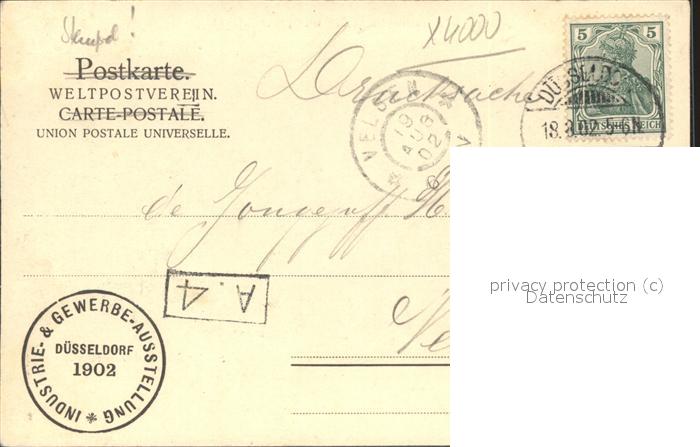 Stempel!
X4000
Postkarte.
WELTPOSTVEREIN.
CARTE-POSTALE.
UNION POSTALE UNIVERSELLE.
Drucksache
5 5
DEUTSCHES REICH
DÜSSELDO
18.8.02. 5-6N
VELSEN
19 AUG 02
de
A.4
INDUSTRIE- & GEWERBE-AUSSTELLUNG
DÜSSELDORF
1902
privacy protection (c)
Datenschutz